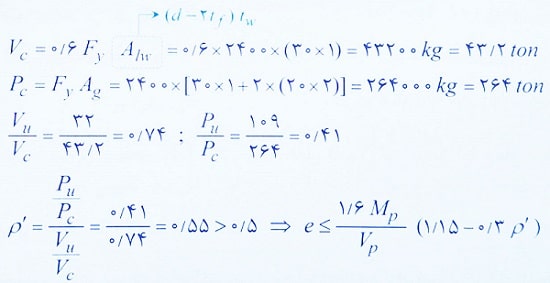 (d - ۲t_f) t_w
V_c = ۰/۶ F_y A_lw = ۰/۶ × ۲۴۰۰ × (۳۰ × ۱) = ۴۳۲۰۰ kg = ۴۳/۲ ton
P_c = F_y A_g = ۲۴۰۰ × [۳۰ × ۱ + ۲ × (۲۰ × ۲)] = ۲۶۴۰۰۰ kg = ۲۶۴ ton
V_u / V_c = ۳۲ / ۴۳/۲ = ۰/۷۴ ; P_u / P_c = ۱۰۹ / ۲۶۴ = ۰/۴۱
ρ′ = (P_u / P_c) / (V_u / V_c) = ۰/۴۱ / ۰/۷۴ = ۰/۵۵ > ۰/۵ ⇒ e ≤ ۱/۶ M_p / V_p (۱/۱۵ - ۰/۳ ρ′)